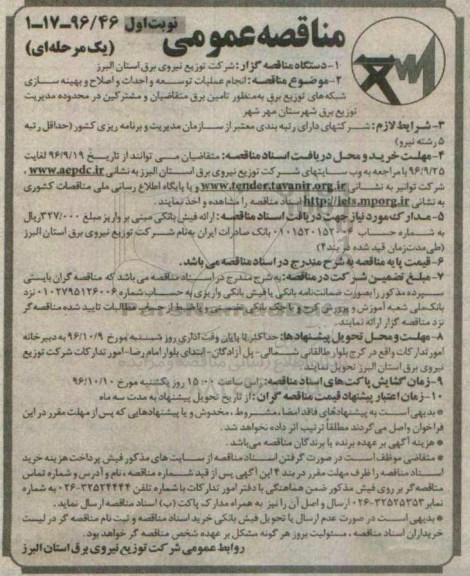 نوبت اول ۹۶/۴۶-۱۷-۱
مناقصه عمومی (یک مرحله‌ای)
۱-دستگاه مناقصه گزار: شرکت توزیع نیروی برق استان البرز
۲-موضوع مناقصه: انجام عملیات توسعه و احداث و اصلاح و بهینه سازی
شبکه‌های توزیع برق به‌منظور تامین برق متقاضیان و مشترکین در محدوده مدیریت
توزیع برق شهرستان مهر شهر
۳-شرایط لازم: شرکتهای دارای رتبه بندی معتبر از سازمان مدیریت و برنامه ریزی کشور (حداقل رتبه
۵ رشته نیرو)
۴-مهلت خرید و محل دریافت اسناد مناقصه: متقاضیان می توانند از تاریخ ۹۶/۹/۱۹ لغایت
۹۶/۹/۲۵ با مراجعه به وب سایتهای شرکت توزیع نیروی برق استان البرز به نشانی www.aepdc.ir،
شرکت توانیر به نشانی www.tender.tavanir.org.ir و یا پایگاه اطلاع رسانی ملی مناقصات کشوری
به نشانی http://iets.mporg.ir اسناد مناقصه را مشاهده و اخذ نمایند.
۵-مدارک مورد نیاز جهت دریافت اسناد مناقصه: ارائه فیش بانکی مبنی بر واریز مبلغ ۳۲۷/۰۰۰ریال
به شماره حساب ۰۱۰۱۵۲۰۱۵۲۰۰۶ بانک صادرات ایران به‌نام شرکت توزیع نیروی برق استان البرز
(طی مدت زمان قید شده در بند۴)
۶-قیمت پایه مناقصه به شرح مندرج در اسناد مناقصه می باشد.
۷-مبلغ تضمین شرکت در مناقصه: به شرح مندرج در اسناد مناقصه می باشد که مناقصه گران بایستی
سپرده مذکور را بصورت ضمانت‌نامه بانکی یا فیش بانکی واریزی به حساب شماره ۰۱۰۲۷۹۵۱۲۶۰۰۶ نزد
بانک ملی شعبه آموزش و پرورش کرج و یا چک بانکی تضمینی و یا ضبط از جمله مطالبات تایید شده مناقصه گر
نزد مناقصه گزار ارائه نمایند.
۸-مهلت و محل تحویل پیشنهادها: حداکثر تا پایان وقت اداری روز شنبه مورخ ۹۶/۱۰/۹ به دبیرخانه
امور تدارکات واقع در کرج بلوار طالقانی شمالی- پل آزادگان- ابتدای بلوار امام رضا- امور تدارکات شرکت توزیع
نیروی برق استان البرز تحویل نمایند.
۹-زمان گشایش پاکت های اسناد مناقصه: راس ساعت ۱۵:۰۰ روز یکشنبه مورخ ۹۶/۱۰/۱۰
۱۰-زمان اعتبار پیشنهاد قیمت مناقصه گران: از تاریخ تحویل پیشنهاد به مدت سه ماه
* بدیهی است به پیشنهادهای فاقد امضا، مشروط، مخدوش و یا پیشنهادهایی که پس از مهلت مقرر در این
فراخوان واصل می گردند مطلقا ترتیب اثر داده نخواهد شد.
* هزینه آگهی بر عهده برنده یا برندگان مناقصه می‌باشد.
* متقاضی موظف است در صورت گرفتن اسناد مناقصه از سایت های مذکور فیش پرداخت هزینه خرید
اسناد مناقصه را ظرف مهلت مقرر در بند ۴ این آگهی پس از قید شماره مناقصه، نام و آدرس و شماره تماس
مناقصه گر بر روی فیش مذکور ضمن هماهنگی با دفتر امور تدارکات با شماره تلفن ۳۲۵۲۴۴۴۴-۰۲۶ به شماره
نمابر ۳۲۵۲۵۳۵۳-۰۲۶ ارسال و اصل آن را نیز به همراه مدارک پاکت (ب) اسناد مناقصه ارسال نماید.
* بدیهی است در صورت عدم ارسال یا تحویل فیش بانکی خرید اسناد مناقصه و ثبت نام مناقصه گر در لیست
خریداران اسناد مناقصه، مسئولیت بروز هر گونه مشکل بر عهده شخص مناقصه گر خواهد بود.
روابط عمومی شرکت توزیع نیروی برق استان البرز